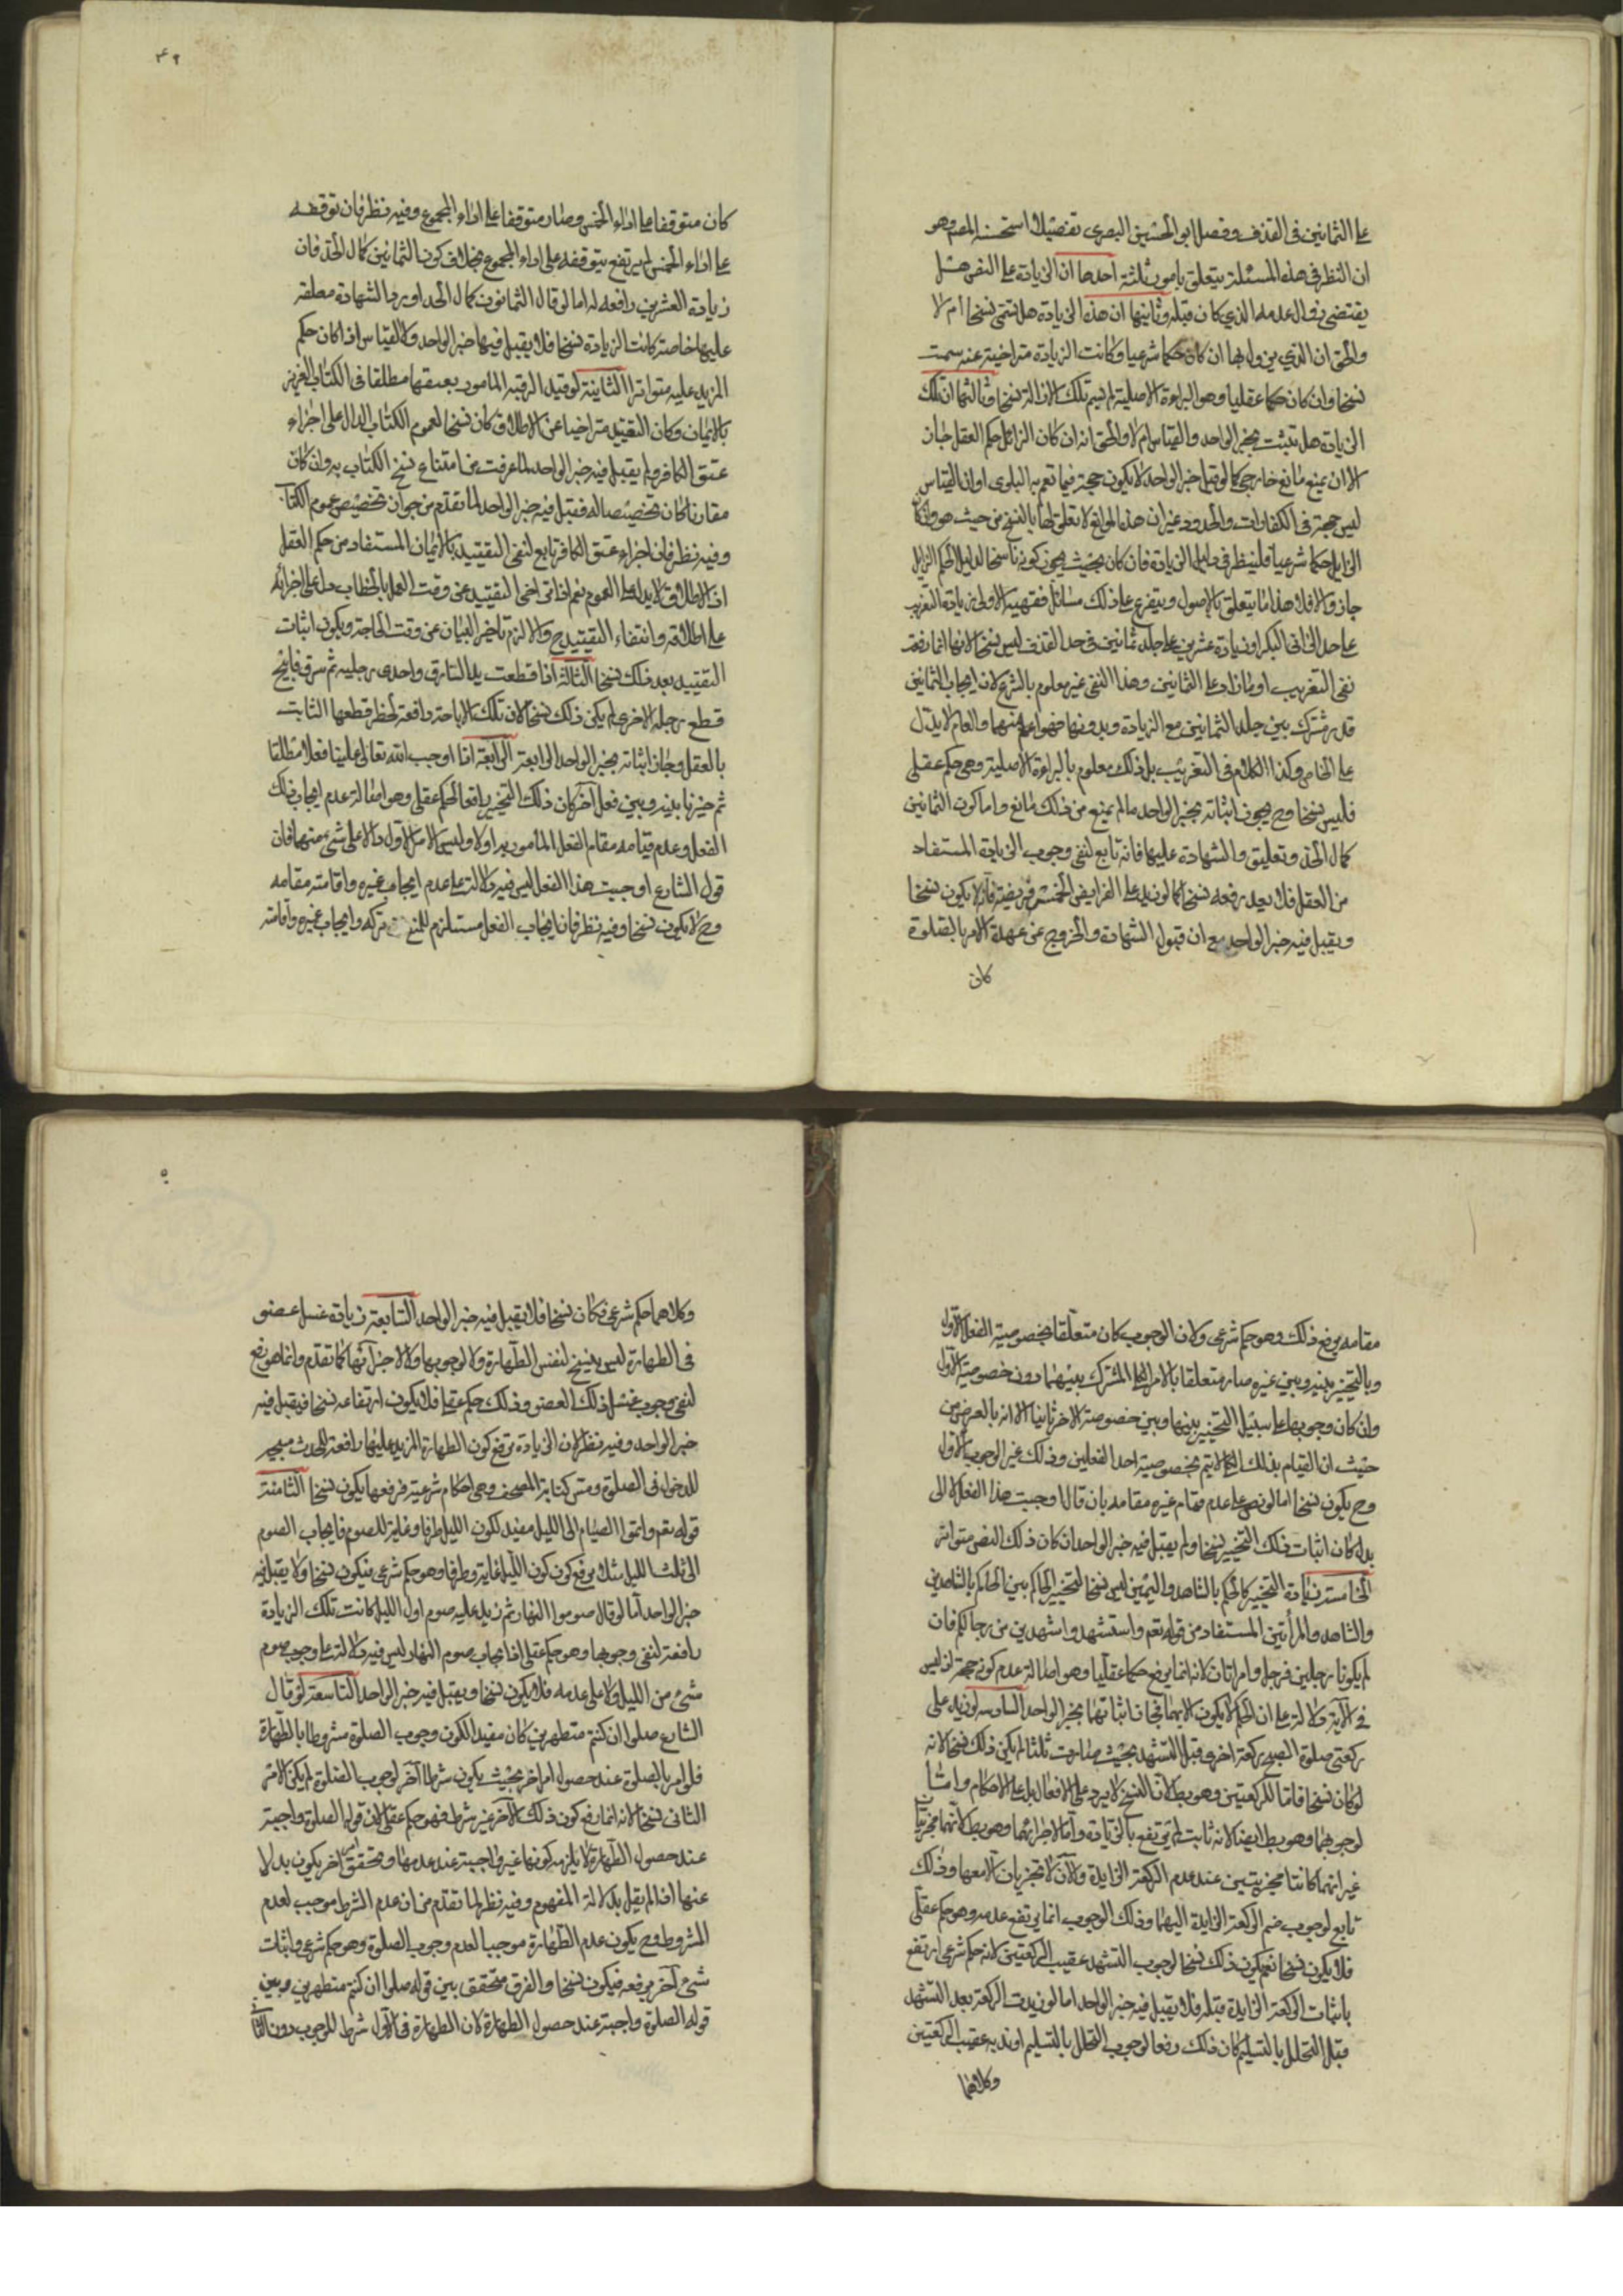 على الثمانين في القذف وفصل ابو الحسين البصري تفصيلا استحسنه المص وهو
ان النظر في هذه المسئلة يتعلق بامور ثلثة احدها ان الزيادة على النص هل
يقتضى زوال عدمه الذي كان قبله وثانيها ان هذه الزيادة هل تسمى نسخا ام لا
والحق ان الذي يزول بها ان كان حكما شرعيا وكانت الزيادة متراخية عنه سميت
نسخا وان كان حكما عقليا وهو البراءة الاصلية لم يسم تلك الازالة نسخا وثالثها ان تلك
الزيادة هل تثبت بخبر الواحد والقياس ام لا والحق انه ان كان الزائل حكم العقل جاز
الا ان يمنع مانع خارجي كما لو قيل خبر الواحد لا يكون حجة فيما تعم به البلوى او ان القياس
ليس حجة في الكفارات والحدود غير ان هذا المانع لا تعلق لها بالنسخ من حيث هو وان كان
الزايل حكما شرعيا فلينظر في دليل الزيادة فان كان بحيث يجوز كونه ناسخا لدليل الحكم الزايل
جاز والا فلا هذا ما يتعلق بالاصول ويتفرع على ذلك مسائل فقهية الاولى زيادة التغريب
على حد الزاني البكر او زيادة عشرين على جلد ثمانين في حد القذف ليس نسخا لانها انما رفعت
نفى التغريب او ما زاد على الثمانين وهذا النفي غير معلوم بالشرع لان ايجاب الثمانين
قدر مشترك بين جلد الثمانين مع الزيادة وبدونها فهو اعم منهما والعام لا يدل
على الخاص وكذا الكلام في التغريب بل ذلك معلوم بالبراءة الاصلية وهي حكم عقلي
فليس نسخا وح يجوز اثباته بخبر الواحد ما لم يمنع من ذلك مانع واما كون الثمانين
كمال الحد وتعليق رد الشهادة عليها فانه تابع لنفي وجوب الزيادة المستفاد
من العقل فلا يعد رفعه نسخا كما لو زيد على الفرايض الخمس فريضة فانه لا يكون نسخا
ويقبل فيه خبر الواحد مع ان قبول الشهادة والخروج عن عهدة الامر بالصلوة
كان
٤٩
كان متوقفا على اداء الخمس وصار متوقفا على اداء المجموع وفيه نظر فان توقفه
على اداء الخمس لم يرتفع بتوقفه على اداء المجموع بخلاف كون الثمانين كمال الحد فان
زيادة العشرين رافعة له اما لو قال الثمانون كمال الحد او رد الشهادة معلقة
عليها خاصة كانت الزيادة نسخا فلا يقبل فيها خبر الواحد ولا القياس اذا كان حكم
المزيد عليه متواترا الثانية لو قيد الرقبة المامور بعتقها مطلقا في الكتاب العزيز
بالايمان وكان التقييد متراخيا عن الاطلاق كان نسخا لعموم الكتاب الدال على اجزاء
عتق الكافر ولم يقبل فيه خبر الواحد لما عرفت من امتناع نسخ الكتاب به وان كان
مقارنا كان تخصيصا له فقبل فيه خبر الواحد لما تقدم من جواز تخصيص عموم الكتاب
وفيه نظر فان اجزاء عتق الكافر تابع لنفي التقييد بالايمان المستفاد من حكم العقل
اذ الاطلاق لا يدل على العموم نعم اذا تراخى التقييد عن وقت العمل بالخطاب دل على اجزائه
على اطلاقه وانتفاء التقييد ح والا لزم تاخير البيان عن وقت الحاجة ويكون اثبات
التقييد بعد ذلك نسخا الثالثة اذا قطعت يد السارق واحدى رجليه ثم سرق فابيح
قطع رجله الاخرى لم يكن ذلك نسخا لان تلك الاباحة رافعة لحظر قطعها الثابت
بالعقل وجاز اثباته بخبر الواحد الرابعة اذا اوجب الله تعالى علينا فعلا مطلقا
ثم خيرنا بينه وبين فعل آخر كان ذلك التخيير رافعا لحكم عقلي وهو اصالة عدم ايجاب ذلك
الفعل وعدم قيامه مقام الفعل المأمور به اولا وليس الامر الاول دالا على شيء منهما فان
قول الشارع اوجبت هذا الفعل ليس فيه دلالة على عدم ايجاب غيره واقامته مقامه
وح لا يكون نسخا وفيه نظر فان ايجاب الفعل مستلزم للمنع تركه وايجاب غيره واقامته
مقامه يرفع ذلك وهو حكم شرعي ولان الوجوب كان متعلقا بخصوصية الفعل الاول
وبالتخيير بينه وبين غيره صار متعلقا بالامر الكلي المشترك بينهما دون خصوصية الاول
وان كان وجوبها على سبيل التخيير بينها وبين خصوصية الاخر ثابتا الا انه بالعرض من
حيث ان القيام بذلك الكلي لا يتم بخصوصية احد الفعلين وذلك غير الوجوب الاول
وح يكون نسخا اما لو نص على عدم مقام غيره مقامه بان قال اوجبت هذا الفعل لا الى
بدل كان اثبات ذلك التخيير نسخا ولم يقبل فيه خبر الواحد ان كان ذلك النص متواتر
الخامسة زيادة التخيير كالحكم بالشاهد واليمين ليس نسخا للتخيير الحاكم بين الحكم بالشاهدين
والشاهد والمرأتين المستفاد من قوله تعم واستشهدوا شهيدين من رجالكم فان
لم يكونا رجلين فرجل وامراتان لانه انما يرفع حكما عقليا وهو اصالة عدم كونه حجة اذ ليس
في الآية دلالة على ان الحكم لا يكون الا بهما فجاز اثباتها بخبر الواحد السادسة لو زيد على
ركعتي صلوة الصبح ركعة اخرى قبل التشهد بحيث صارت ثلثا لم يكن ذلك نسخا لانه
لو كان نسخا فاما للركعتين وهو بط لان النسخ لا يرد على الافعال بل على الاحكام واما
لوجوبهما وهو بط ايضا لانه ثابت لم يرتفع بالزيادة واما لاجزائهما وهو بط لانهما مجزيتان
غير انهما كانتا مجزيتين عند عدم الركعة الزايدة والآن لا تجزيان الا معها وذلك
تابع لوجوب ضم الركعة الزايدة اليهما وذلك الوجوب انما يرتفع عدمه وهو حكم عقلي
فلا يكون نسخا نعم يكون ذلك نسخا لوجوب التشهد عقيب الركعتين لانه حكم شرعي ارتفع
باثبات الركعة الزايدة قبله فلا يقبل فيه خبر الواحد اما لو زيدت الركعة بعد التشهد
قبل التحلل بالتسليم كان ذلك رفعا لوجوب التحلل بالتسليم او ندبه عقيب الركعتين
وكلاهما
٥٠
وكلاهما حكم شرعي فكان نسخا فلا يقبل فيه خبر الواحد السابعة زيادة غسل عضو
في الطهارة ليس بنسخ لنفس الطهارة ولا لوجوبها ولا لاجزائها كما تقدم وانما هو رفع
لنفي وجوب غسل ذلك العضو وذلك حكم عقلي فلا يكون ارتفاعه نسخا فيقبل فيه
خبر الواحد وفيه نظر لان الزيادة ترفع كون الطهارة المزيد عليها رافعة للحدث مبيحة
للدخول في الصلوة ومس كتابة المصحف وهي احكام شرعية فرفعها يكون نسخا الثامنة
قوله تعم واتموا الصيام الى الليل مفيد لكون الليل طرفا وغاية للصوم فايجاب الصوم
الى ثلث الليل مثلا يرفع كون كون الليل غاية وطرفا وهو حكم شرعي فيكون نسخا ولا يقبل فيه
خبر الواحد اما لو قال صوموا النهار ثم زيد عليه صوم اول الليل كانت تلك الزيادة
رافعة لنفي وجوبها وهو حكم عقلي اذ ايجاب صوم النهار ليس فيه دلالة على وجوب صوم
شيء من الليل ولا على عدمه فلا يكون نسخا ويقبل فيه خبر الواحد التاسعة لو قال
الشارع صلوا ان كنتم متطهرين كان مفيدا لكون وجوب الصلوة مشروطا بالطهارة
فلو امر بالصلوة عند حصول امر اخر بحيث يكون شرطا آخر لوجوب الصلوة لم يكن الامر
الثاني نسخا لانه انما رفع كون ذلك الآخر غير شرط فهو حكم عقلي لان قوله الصلوة واجبة
عند حصول الطهارة لا يلزمه كونها غير واجبة عند عدمها وتحقق امر آخر يكون بدلا
عنها اذا لم يقل بدلالة المفهوم وفيه نظر لما تقدم من ان عدم الشرط موجب لعدم
المشروط وح يكون عدم الطهارة موجبا لعدم وجوب الصلوة وهو حكم شرعي واثبات
شيء آخر يرفعه فيكون نسخا والفرق متحقق بين قوله صلوا ان كنتم متطهرين وبين
قوله الصلوة واجبة عند حصول الطهارة لان الطهارة في الاول شرط للوجوب دون الثاني